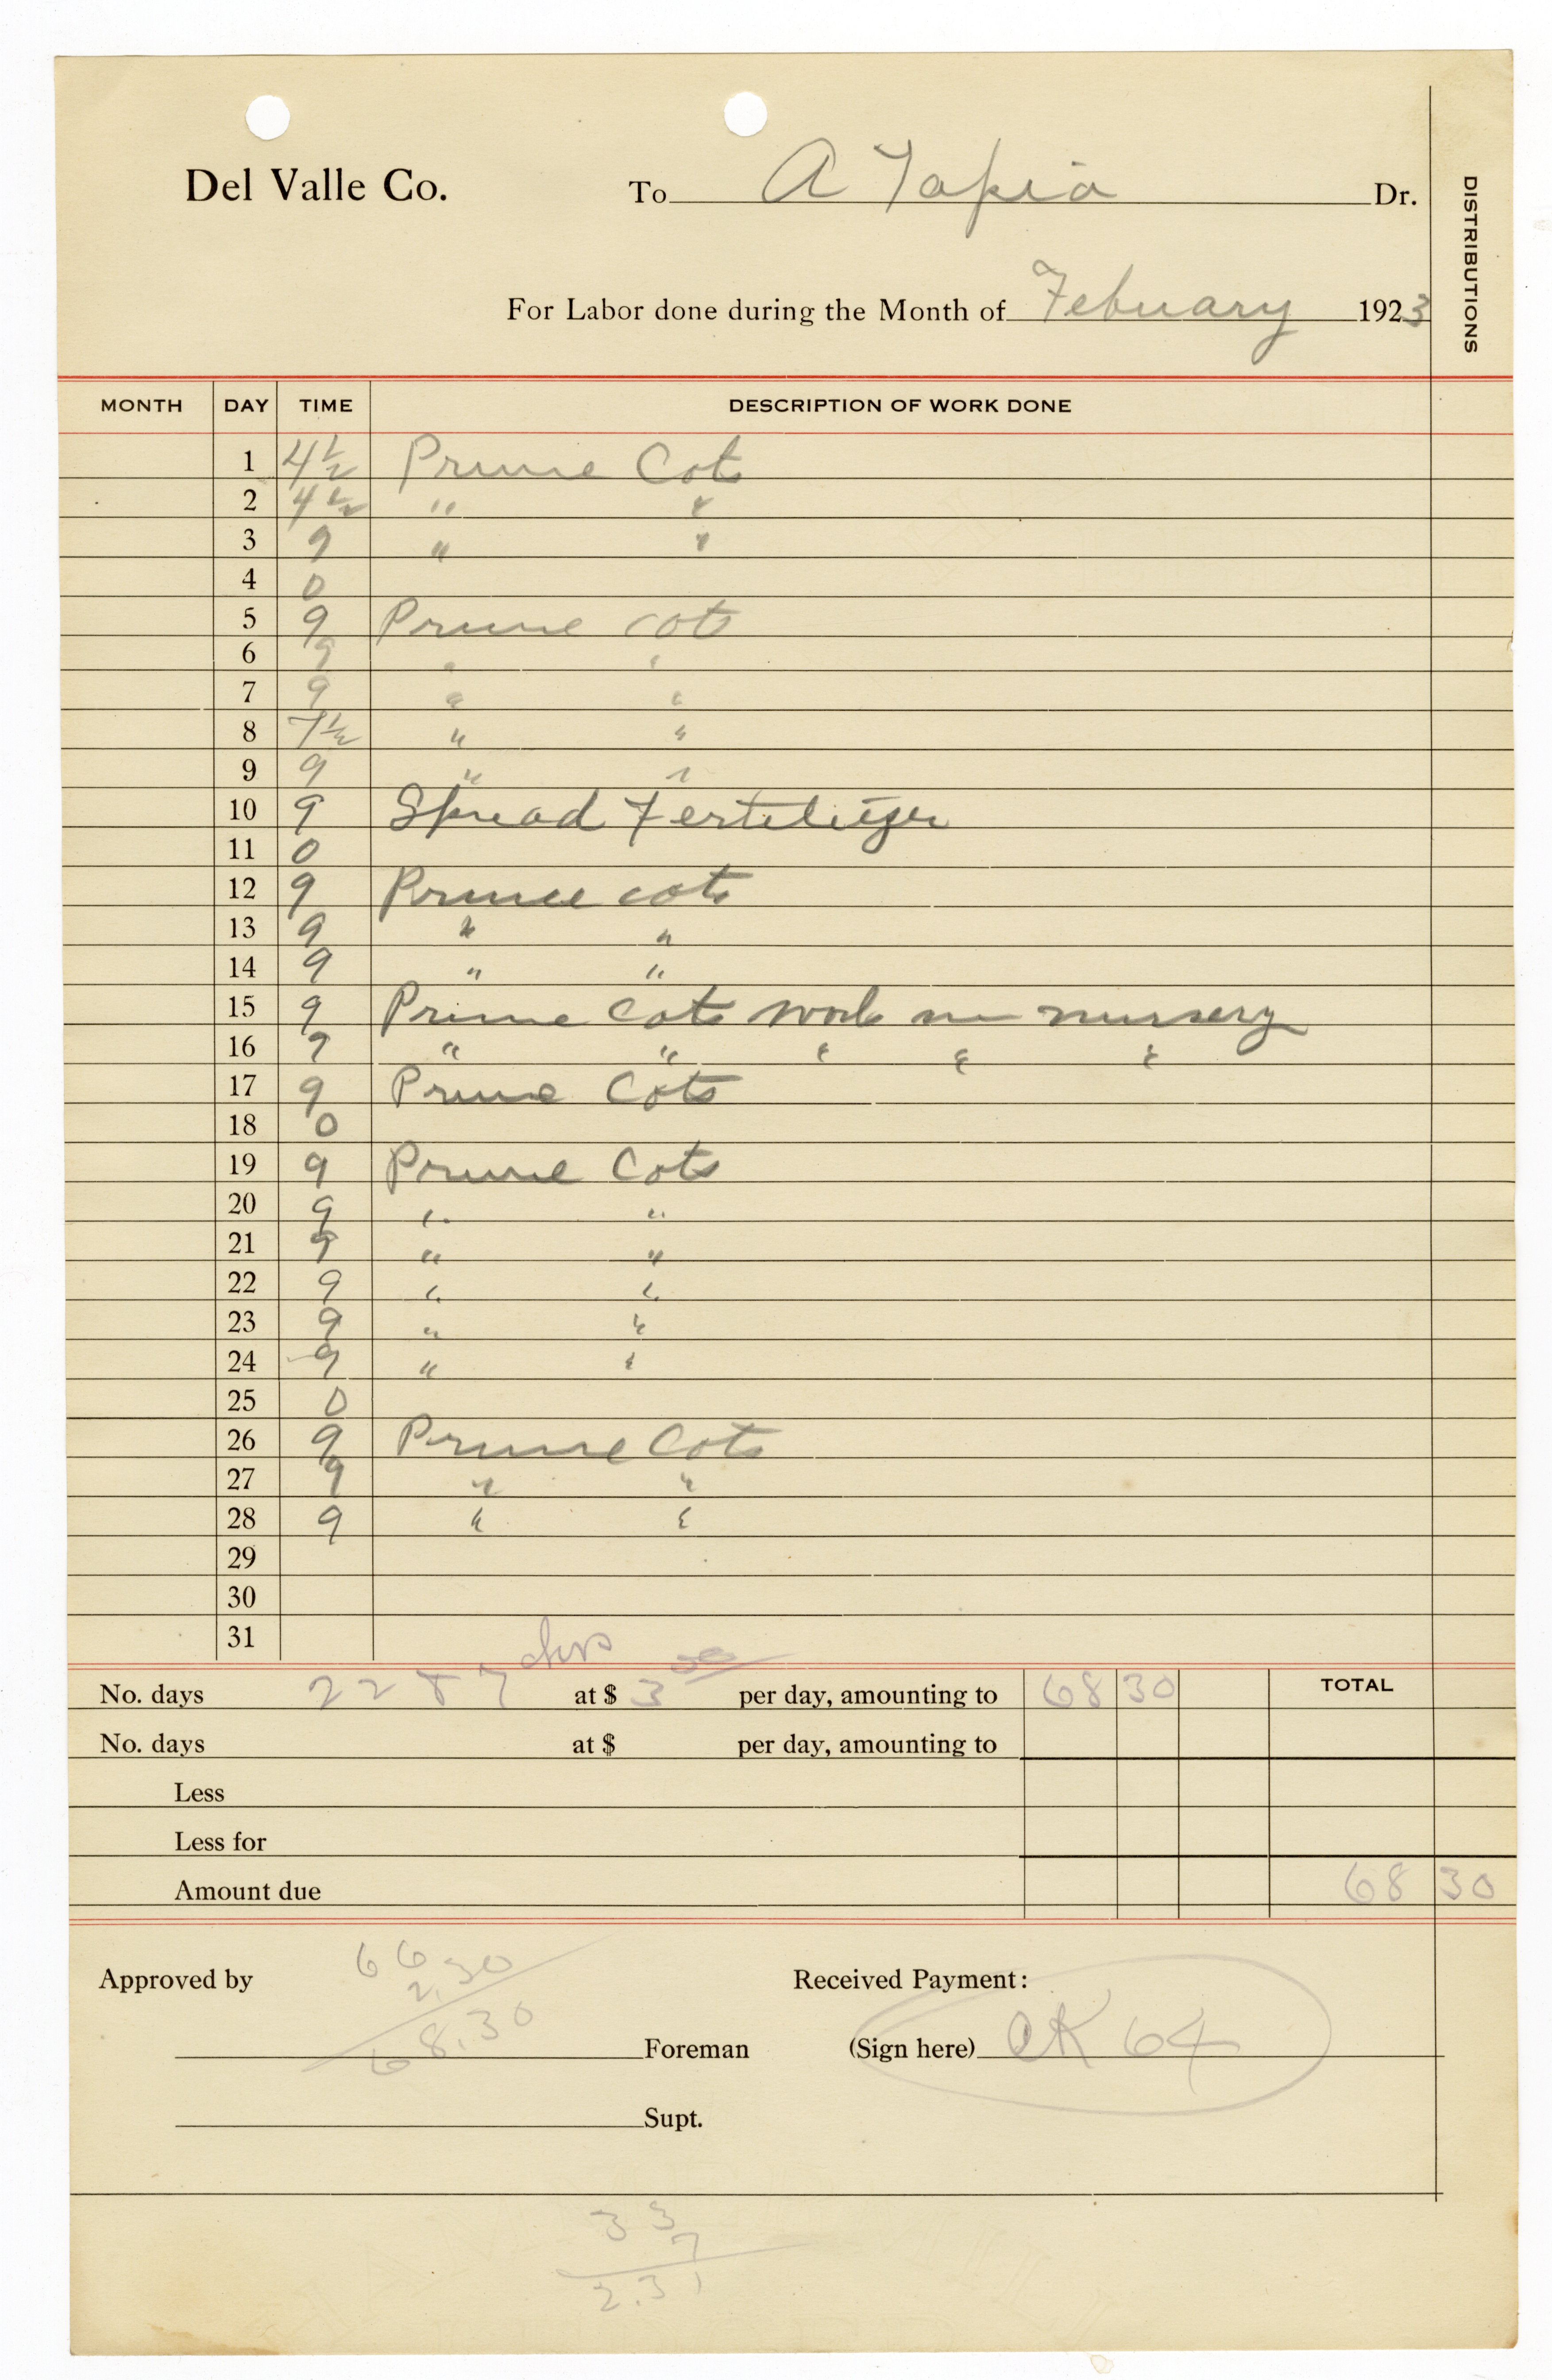 Del Valle Co. To A Tapia Dr.
DISTRIBUTIONS
For Labor done during the Month of Febuary 1923
MONTH DAY TIME DESCRIPTION OF WORK DONE
1 4 1/2 Prune Cots
2 4 1/2 " "
3 9 " "
4 0
5 9 Prune cots
6 9 " "
7 9 " "
8 7 1/2 " "
9 9 " "
10 9 Spread Fertelizer
11 0
12 9 Prune cots
13 9 " "
14 9 " "
15 9 Prune Cots work in nursery
16 9 " " " " "
17 9 Prune Cots
18 0
19 9 Prune Cots
20 9 " "
21 9 " "
22 9 " "
23 9 " "
24 9 " "
25 0
26 9 Prune Cots
27 9 " "
28 9 " "
29
30
31
No. days 22 & 7 hrs at $ 3 00 per day, amounting to 68 30 TOTAL
No. days at $ per day, amounting to
Less
Less for
Amount due 68 30
66
2.30
68.30
Approved by Received Payment:
Foreman (Sign here) CK 64
Supt.
33
7
2.31